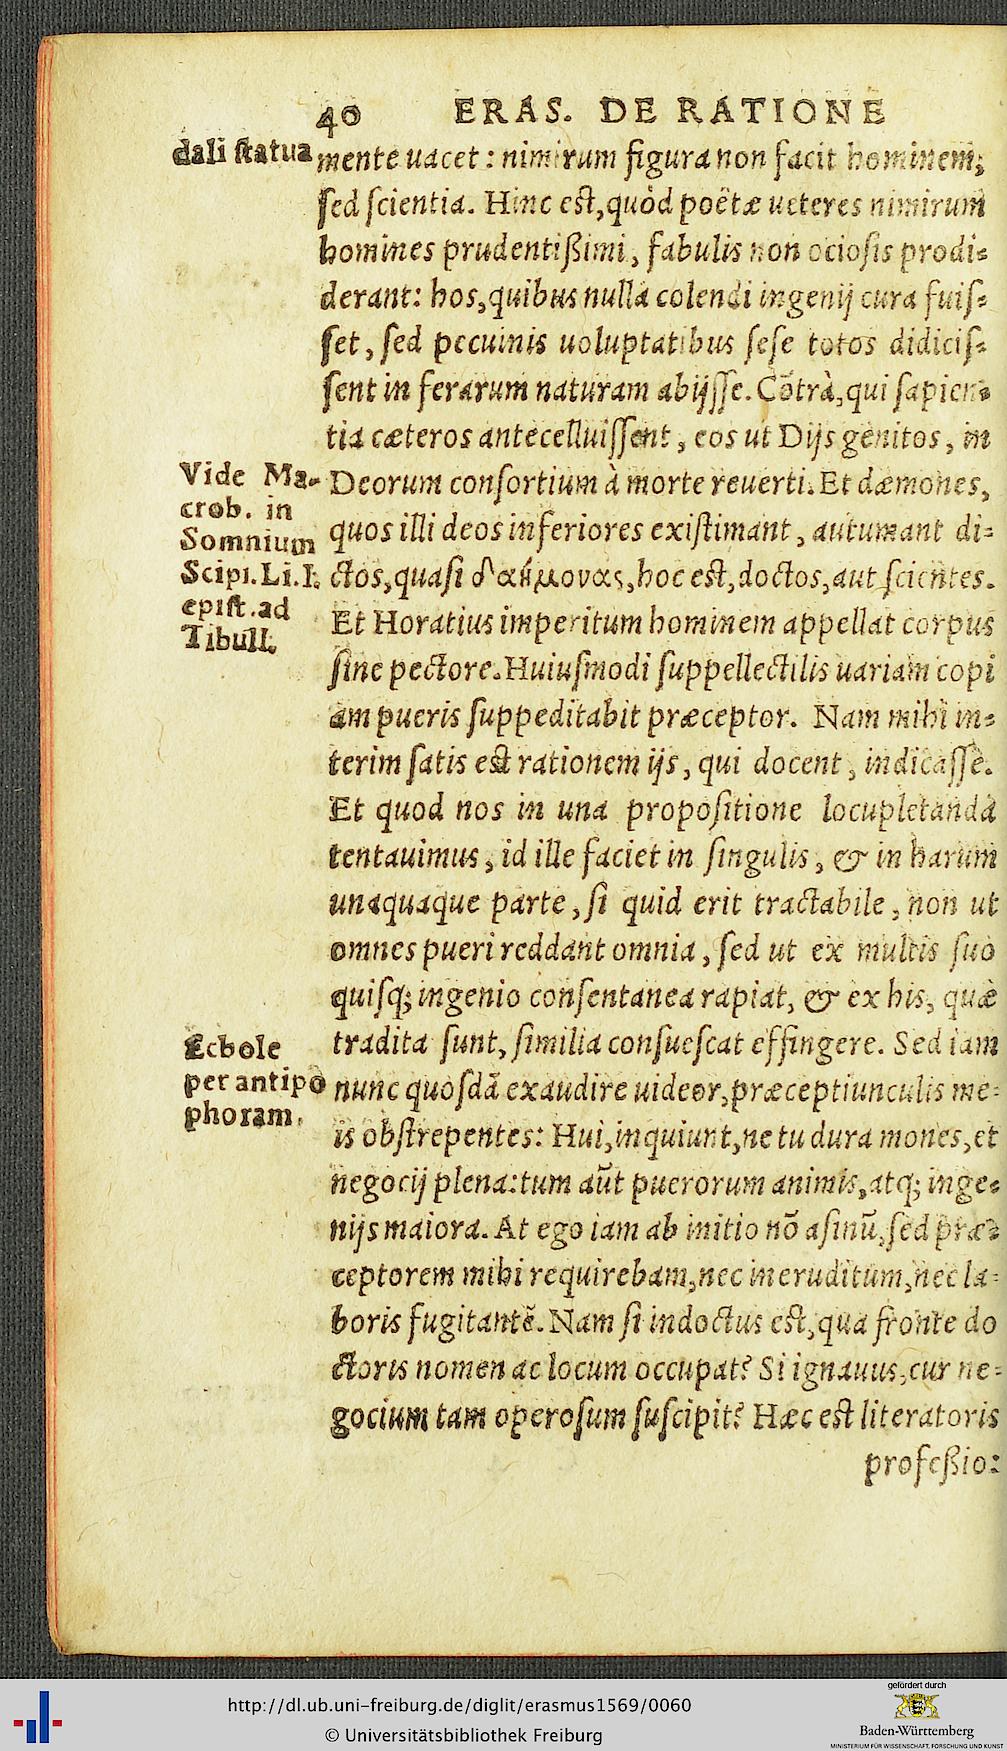 40 ERAS. DE RATIONE
dali statua
mente uacet: nimirum figura non facit hominem;
sed scientia. Hinc est, quòd poëtæ ueteres nimirum
homines prudentißimi, fabulis non ociosis prodi-
derant: hos, quibus nulla colendi ingenij cura fuis-
set, sed pecuinis uoluptatibus sese totos didicis-
sent in ferarum naturam abijsse. Cõtrà, qui sapien-
tia cæteros antecelluissent, eos ut Dijs genitos, in
Vide Ma-
crob. in
Somnium
Scipi. Li. I.
epist. ad
Tibull.
Deorum consortium à morte reuerti. Et dæmones,
quos illi deos inferiores existimant, autumant di-
ctos, quasi δαήμονας, hoc est, doctos, aut scientes.
Et Horatius imperitum hominem appellat corpus
sine pectore. Huiusmodi suppellectilis uariam copi
am pueris suppeditabit præceptor. Nam mihi in-
terim satis est rationem ijs, qui docent, indicasse.
Et quod nos in una propositione locupletanda
tentauimus, id ille faciet in singulis, & in harum
unaquaque parte, si quid erit tractabile, non ut
omnes pueri reddant omnia, sed ut ex multis suo
quisq; ingenio consentanea rapiat, & ex his, quæ
Ecbole
per antipo
phoram.
tradita sunt, similia consuescat effingere. Sed iam
nunc quosdã exaudire uideor, præceptiunculis me-
is obstrepentes: Hui, inquiunt, ne tu dura mones, et
negocij plena: tum aũt puerorum animis, atq; inge-
nijs maiora. At ego iam ab initio nõ asinũ, sed præ-
ceptorem mihi requirebam, nec ineruditum, nec la-
boris fugitantẽ. Nam si indoctus est, qua fronte do
ctoris nomen ac locum occupat? Si ignauus, cur ne-
gocium tam operosum suscipit? Hæc est literatoris
profeßio:
http://dl.ub.uni-freiburg.de/diglit/erasmus1569/0060
© Universitätsbibliothek Freiburg
gefördert durch
Baden-Württemberg
MINISTERIUM FÜR WISSENSCHAFT, FORSCHUNG UND KUNST